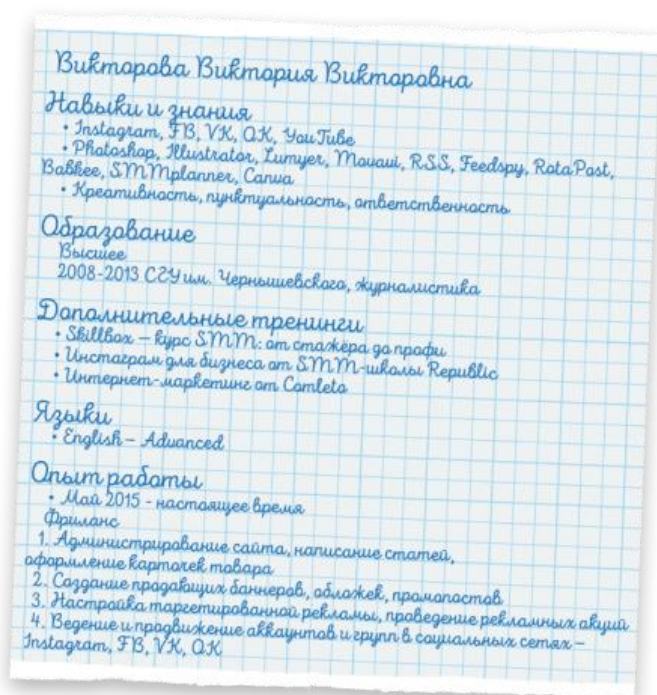 Викторова Виктория Викторовна
Навыки и знания
• Instagram, FB, VK, OK, YouTube
• Photoshop, Illustrator, Lumyer, Movavi, RSS, Feedspy, RotaPost,
Babkee, SMMplanner, Canva
• Креативность, пунктуальность, ответственность
Образование
Высшее
2008-2013 СГУ им. Чернышевского, журналистика
Дополнительные тренинги
• Skillbox – курс SMM: от стажёра до профи
• Инстаграм для бизнеса от SMM-школы Republic
• Интернет-маркетинг от Comleto
Языки
• English – Advanced
Опыт работы
• Май 2015 - настоящее время
Фриланс
1. Администрирование сайта, написание статей,
оформление карточек товара
2. Создание продающих баннеров, обложек, промопостов
3. Настройка таргетированной рекламы, проведение рекламных акций
4. Ведение и продвижение аккаунтов и групп в социальных сетях –
Instagram, FB, VK, OK